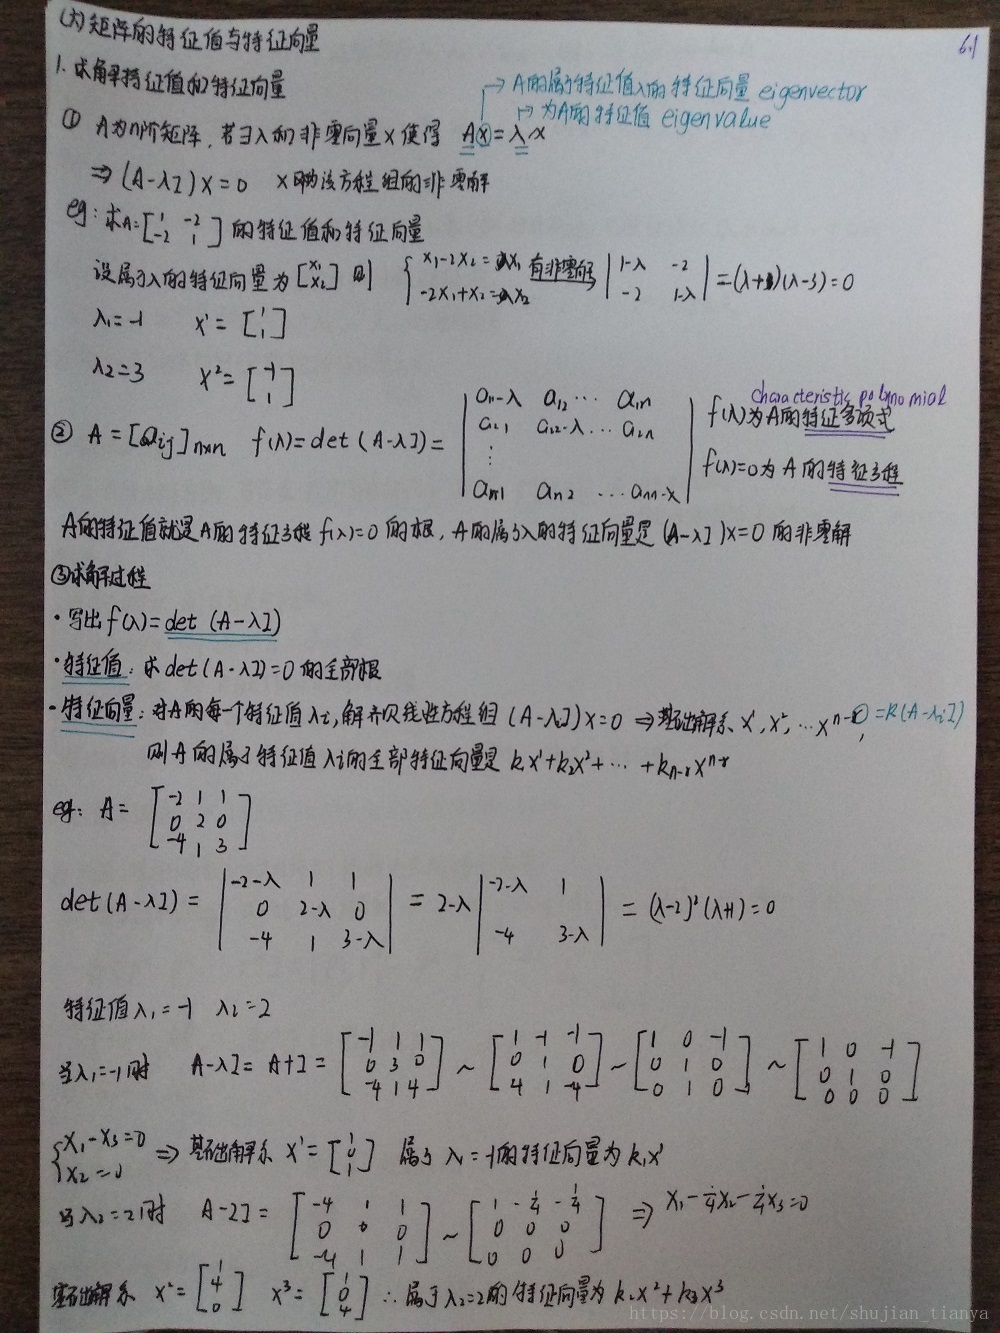 (六)矩阵的特征值与特征向量
6.1
1. 求解特征值和特征向量
→ A的属于特征值λ的特征向量 eigenvector
→ 为A的特征值 eigenvalue
① A为n阶矩阵, 若∃λ和非零向量X使得 AX=λX
⇒ (A-λI)X=0 X即为该方程组的非零解
eg: 求A=[1 -2; -2 1] 的特征值和特征向量
设属于λ的特征向量为 [x₁; x₂] 则 {x₁-2x₂=λx₁; -2x₁+x₂=λx₂ 有非零向 |1-λ -2; -2 1-λ| =(λ+1)(λ-3)=0
λ₁=-1 X¹=[1; 1]
λ₂=3 X²=[-1; 1]
characteristic polynomial
② A=[aij]n×n f(λ)=det(A-λI)= |a₁₁-λ a₁₂ ⋯ a₁n; a₂₁ a₂₂-λ … a₂n; ⋮; an1 an2 … ann-λ| f(λ)为A的特征多项式
f(λ)=0为A的特征方程
A的特征值就是A的特征方程 f(λ)=0 的根, A的属于λ的特征向量是 (A-λI)X=0 的非零解
③求解过程
· 写出 f(λ)=det (A-λI)
· 特征值: 求det(A-λI)=0 的全部根
· 特征向量: 对A的每一个特征值λi, 解齐次线性方程组 (A-λiI)X=0 ⇒ 基础解系 X¹, X², ⋯X^(n-r), =R(A-λiI)
则A的属于特征值λi的全部特征向量是 k₁X¹+k₂X²+⋯+kn-rX^(n-r)
eg: A= [-2 1 1; 0 2 0; -4 1 3]
det(A-λI)= |-2-λ 1 1; 0 2-λ 0; -4 1 3-λ| = 2-λ |-2-λ 1; -4 3-λ| = (λ-2)²(λ+1)=0
特征值λ₁=-1 λ₂=2
当λ₁=-1时 A-λI= A+I= [-1 1 1; 0 3 0; -4 1 4] ~ [1 -1 -1; 0 1 0; 4 1 -4] ~ [1 0 -1; 0 1 0; 0 1 0] ~ [1 0 -1; 0 1 0; 0 0 0]
{x₁-x₃=0; x₂=0 ⇒ 基础解系 X¹=[1; 0; 1] 属于λ₁=-1的特征向量为k₁X¹
当λ₂=2时 A-2I= [-4 1 1; 0 0 0; -4 1 1] ~ [1 -1/4 -1/4; 0 0 0; 0 0 0] ⇒ x₁-1/4x₂-1/4x₃=0
基础解系 X²=[1; 4; 0] X³=[1; 0; 4] ∴属于λ₂=2的特征向量为 k₂X²+k₃X³
https://blog.csdn.net/shujian_tianya